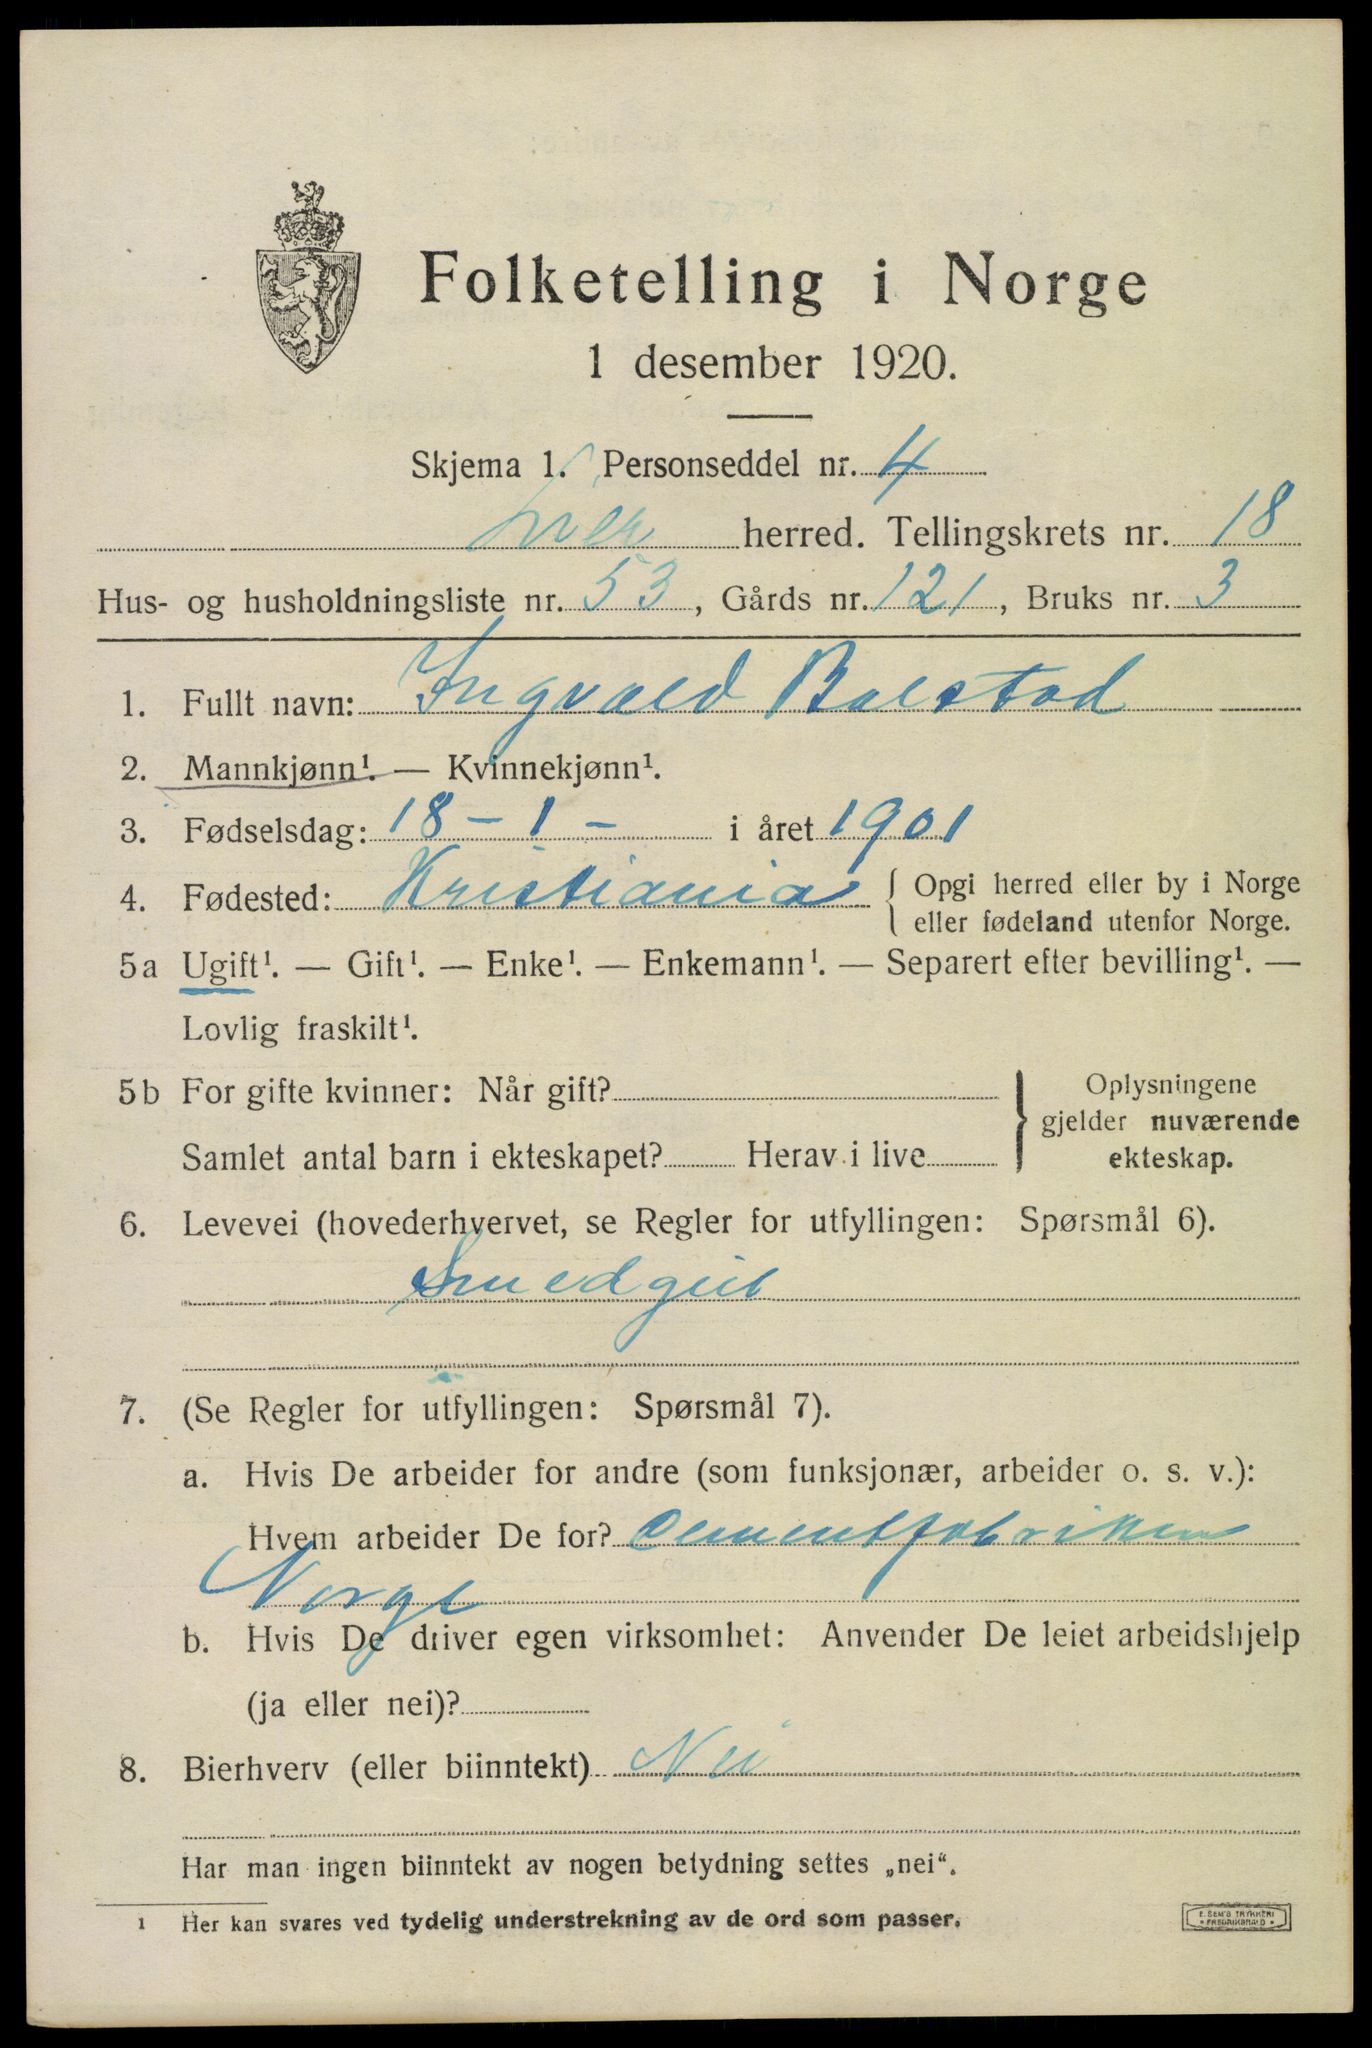 Folketelling i Norge
1 desember 1920.
Skjema 1. Personseddel nr. 4
Lier herred. Tellingskrets nr. 18
Hus- og husholdningsliste nr. 53, Gårds nr. 121, Bruks nr. 3
1. Fullt navn: Ingvald Bolstad
2. Mannkjønn¹. — Kvinnekjønn¹.
3. Fødselsdag: 18 - 1 - i året 1901
4. Fødested: Kristiania { Opgi herred eller by i Norge
eller fødeland utenfor Norge.
5a Ugift¹. — Gift¹. — Enke¹. — Enkemann¹. — Separert efter bevilling¹. —
Lovlig fraskilt¹.
5b For gifte kvinner: Når gift? } Oplysningene
gjelder nuværende
Samlet antal barn i ekteskapet? Herav i live ekteskap.
6. Levevei (hovederhvervet, se Regler for utfyllingen: Spørsmål 6).
Smedgut
7. (Se Regler for utfyllingen: Spørsmål 7).
a. Hvis De arbeider for andre (som funksjonær, arbeider o. s. v.):
Hvem arbeider De for? Cementfabriken
Norge
b. Hvis De driver egen virksomhet: Anvender De leiet arbeidshjelp
(ja eller nei)?
8. Bierhverv (eller biinntekt) Nei
Har man ingen biinntekt av nogen betydning settes „nei“.
1 Her kan svares ved tydelig understrekning av de ord som passer.
E. SEM'S TRYKKERI
FREDRIKSHALD